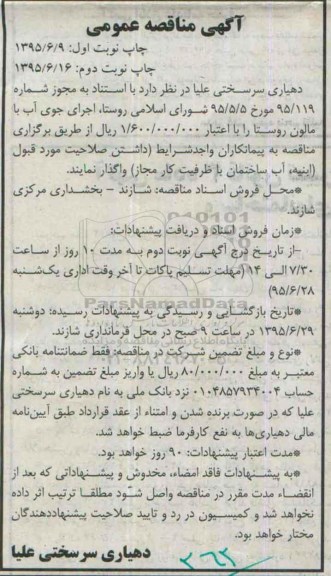 آگهی مناقصه عمومی
چاپ نوبت اول: ۱۳۹۵/۶/۹
چاپ نوبت دوم: ۱۳۹۵/۶/۱۶
دهیاری سرسختی علیا در نظر دارد با استناد به مجوز شماره
۹۵/۱۱۹ مورخ ۹۵/۵/۵ شورای اسلامی روستا، اجرای جوی آب با
مالون روستا را با اعتبار ۱/۶۰۰/۰۰۰/۰۰۰ ریال از طریق برگزاری
مناقصه به پیمانکاران واجدشرایط (داشتن صلاحیت مورد قبول
(ابنیه، آب ساختمان با ظرفیت کار مجاز) واگذار نمایند.
*محل فروش اسناد مناقصه: شازند – بخشداری مرکزی
شازند.
*زمان فروش اسناد و دریافت پیشنهادات:
–از تاریخ درج آگهی نوبت دوم به مدت ۱۰ روز از ساعت
۷/۳۰ الی ۱۴ (مهلت تسلیم پاکات تا آخر وقت اداری یک‌شنبه
۹۵/۶/۲۸)
*تاریخ بازگشایی و رسیدگی به پیشنهادات رسیده: دوشنبه
۱۳۹۵/۶/۲۹ در ساعت ۹ صبح در محل فرمانداری شازند.
*نوع و مبلغ تضمین شرکت در مناقصه: فقط ضمانتنامه بانکی
معتبر به مبلغ ۸۰/۰۰۰/۰۰۰ ریال یا واریز مبلغ تضمین به شماره
حساب ۰۱۰۴۸۵۷۹۳۴۰۰۴ نزد بانک ملی به نام دهیاری سرسختی
علیا که در صورت برنده شدن و امتناء از عقد قرارداد طبق آیین‌نامه
مالی دهیاری‌ها به نفع کارفرما ضبط خواهد شد.
*مدت اعتبار پیشنهادات: ۹۰ روز خواهد بود.
*به پیشنهادات فاقد امضاء، مخدوش و پیشنهاداتی که بعد از
انقضاء مدت مقرر در مناقصه واصل شود مطلقا ترتیب اثر داده
نخواهد شد و کمیسیون در رد و تایید صلاحیت پیشنهاددهندگان
مختار خواهد بود.
دهیاری سرسختی علیا
ParsNamadData